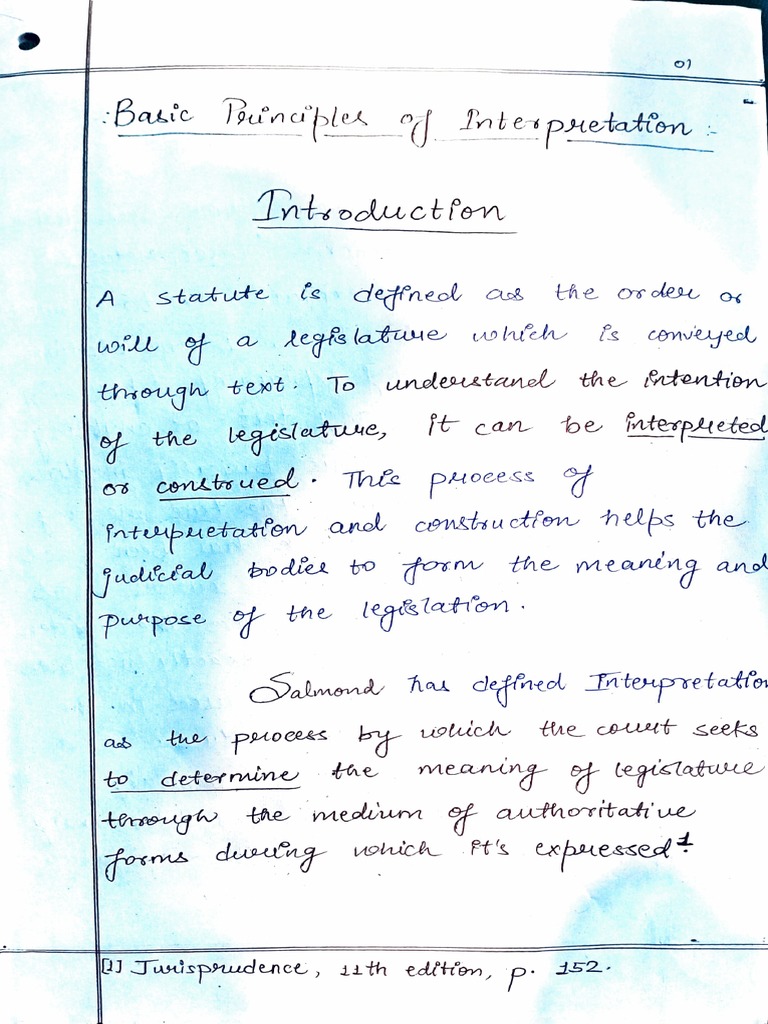 01
:Basic Principles of Interpretation :-
Introduction
A statute is defined as the order or
will of a legislature which is conveyed
through text. To understand the intention
of the legislature, it can be interpreted
or construed. This process of
interpretation and construction helps the
judicial bodies to form the meaning and
purpose of the legislation.
Salmond has defined Interpretation
as the process by which the court seeks
to determine the meaning of legislature
through the medium of authoritative
forms during which it's expressed.1
[1] Jurisprudence, 11th edition, p. 152.